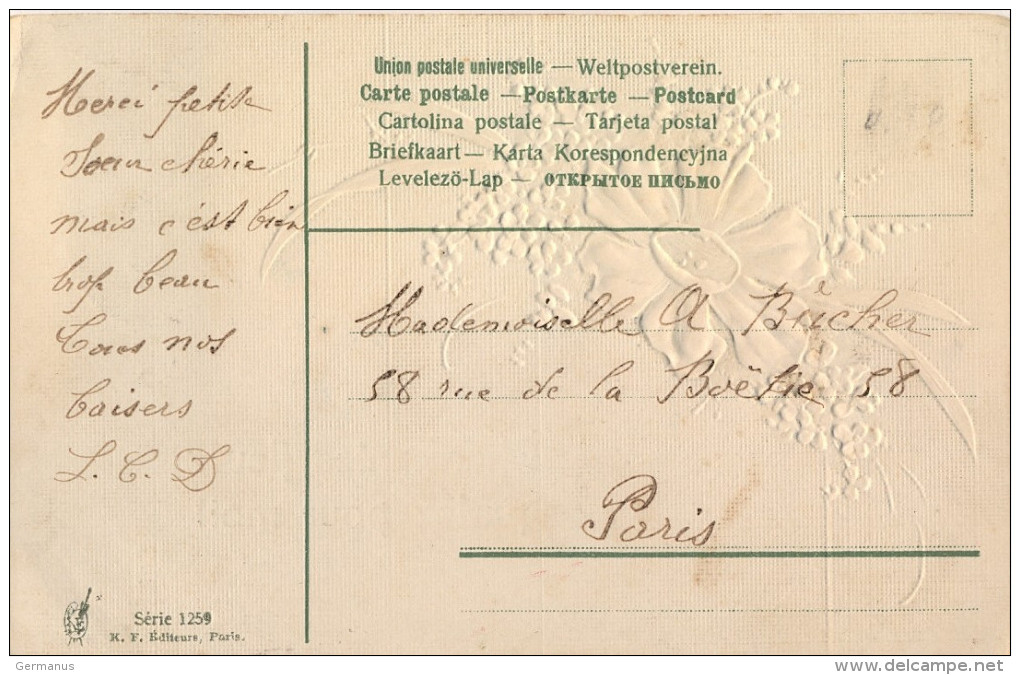 Merci petite
Soeur chérie
mais c'est bien
trop beau
Tous nos
baisers
L. C. D
Union postale universelle — Weltpostverein.
Carte postale — Postkarte — Postcard
Cartolina postale — Tarjeta postal
Briefkaart — Karta Korespondencyjna
Levelezö-Lap — ОТКРЫТОЕ ПИСЬМО
Mademoiselle A Bücher
58 rue de la Boëtie 58
Paris
Série 1259
K. F. Éditeurs, Paris.
Germanus
www.delcampe.net